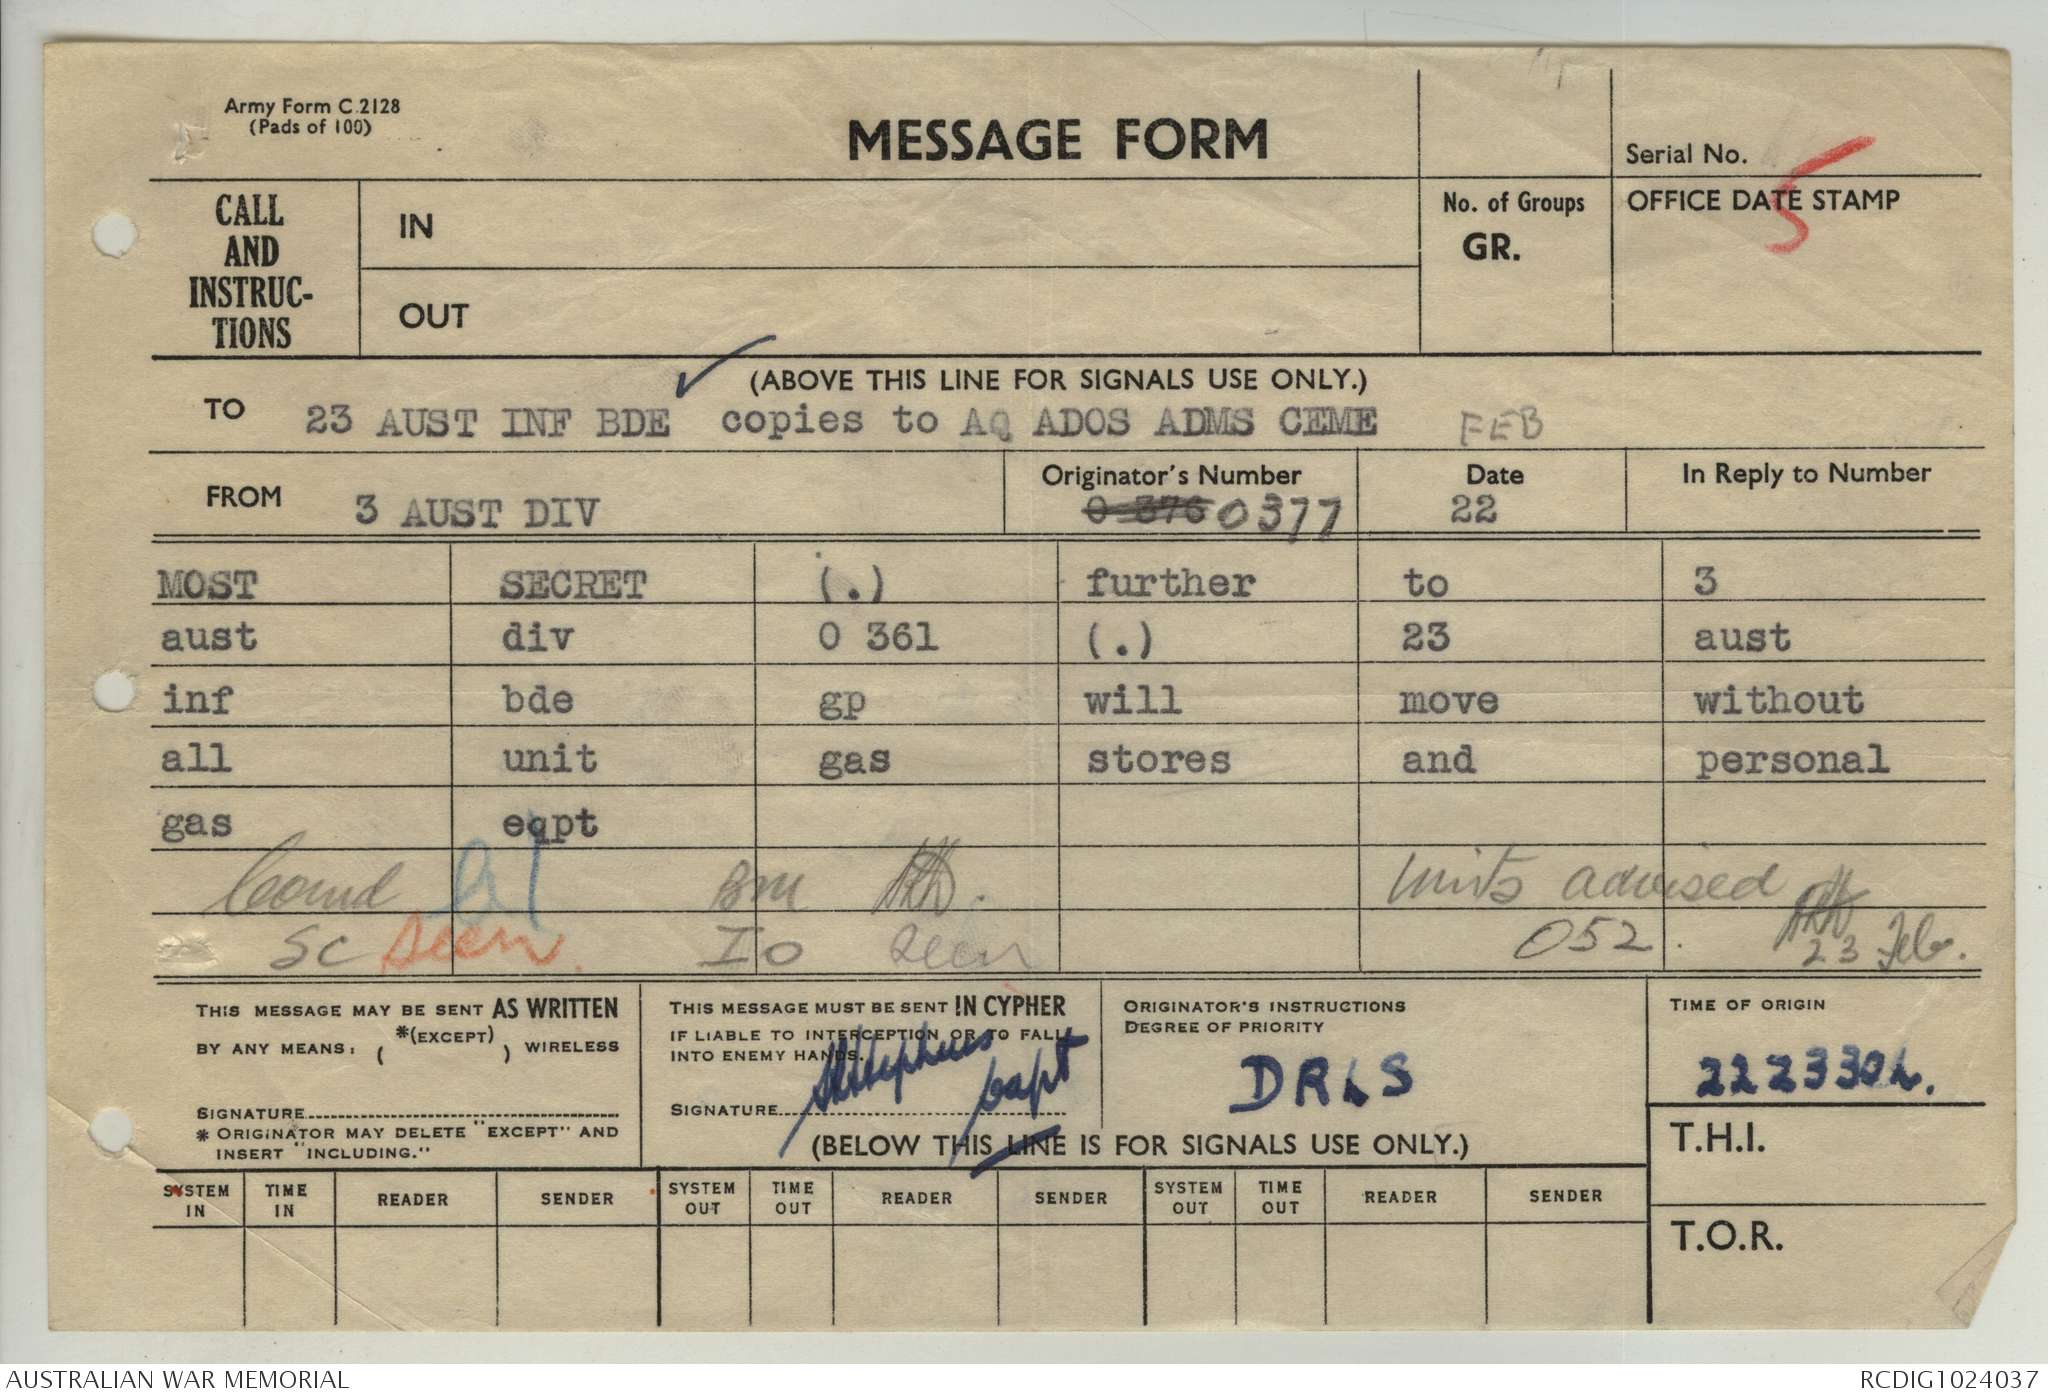 Army Form C.2128
(Pads of 100)
MESSAGE FORM
Serial No.
5
CALL AND INSTRUC-TIONS
IN
OUT
No. of Groups
GR.
OFFICE DATE STAMP
(ABOVE THIS LINE FOR SIGNALS USE ONLY.)
TO 23 AUST INF BDE copies to AQ ADOS ADMS CEME FEB
FROM 3 AUST DIV
Originator's Number 0 376 0377
Date 22
In Reply to Number
MOST SECRET (.) further to 3
aust div 0 361 (.) 23 aust
inf bde gp will move without
all unit gas stores and personal
gas eqpt
Comd BM Units advised
SC Seen. IO Seen 052. 23 Feb.
THIS MESSAGE MAY BE SENT AS WRITTEN
BY ANY MEANS: ( *(EXCEPT) ) WIRELESS
SIGNATURE
* ORIGINATOR MAY DELETE "EXCEPT" AND
INSERT "INCLUDING."
THIS MESSAGE MUST BE SENT IN CYPHER
IF LIABLE TO INTERCEPTION OR TO FALL
INTO ENEMY HANDS.
SIGNATURE Capt
ORIGINATOR'S INSTRUCTIONS
DEGREE OF PRIORITY
DRLS
TIME OF ORIGIN
222330L.
(BELOW THIS LINE IS FOR SIGNALS USE ONLY.)
T.H.I.
T.O.R.
SYSTEM IN TIME IN READER SENDER SYSTEM OUT TIME OUT READER SENDER SYSTEM OUT TIME OUT READER SENDER
AUSTRALIAN WAR MEMORIAL RCDIG1024037